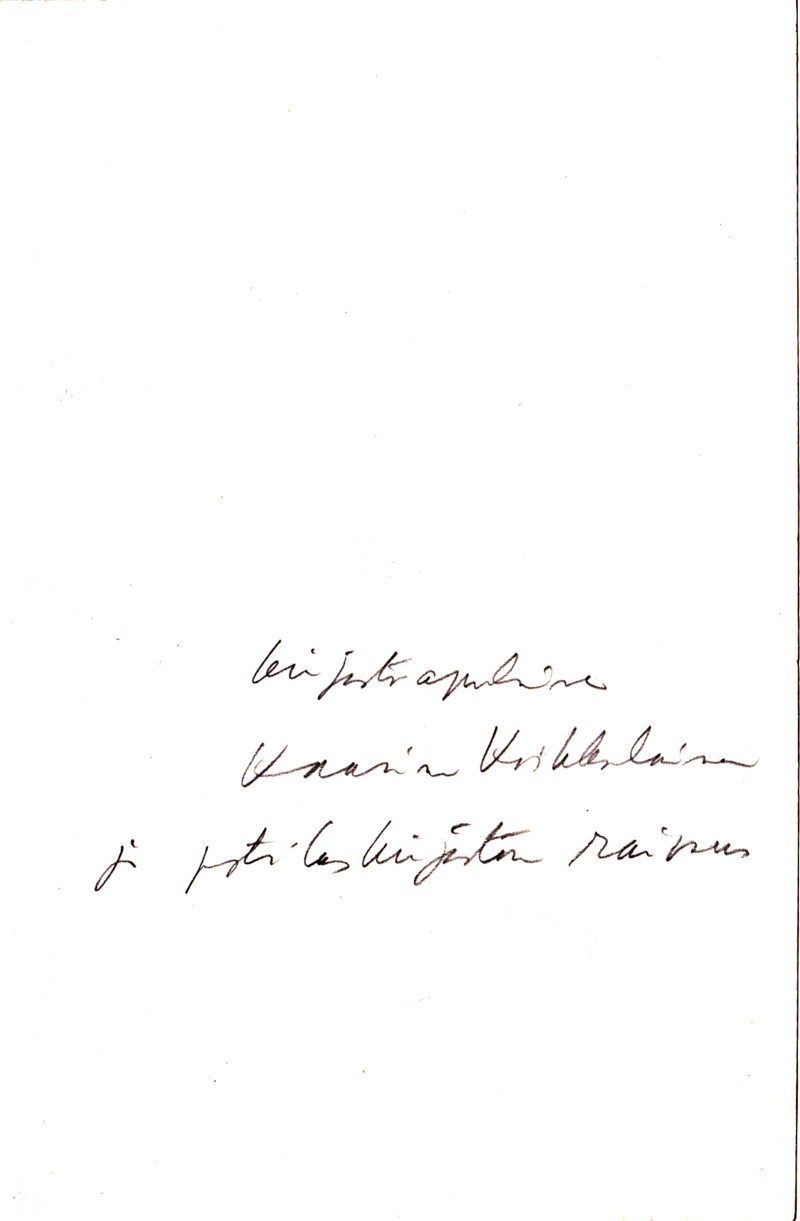 kirjastoapulainen
Kaarina Koikkalainen
ja potilaskirjaston raivaus